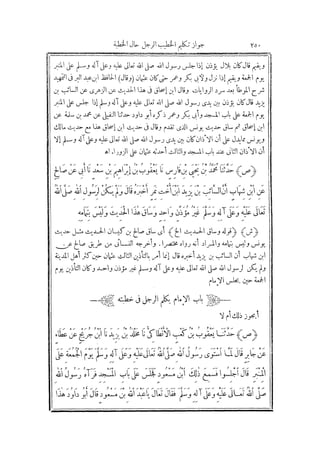 ٢٥٠ جواز تكليم الخطيب الرجل حال الخطبة
ويقيم قال كان بلال يؤذن إذا جلس رسول الله صلى الله تعالى عليه وعلى آله وسلم على المنبر
يوم الجمعة ويقيم إذا نزل ولأبى بكر وعمر حتى كان عثمان (وقال) الحافظ ابن عبد البر فى التمهيد
شرح الموطأ بعد سرد الروايات وقال ابن إسحاق فى هذا الحديث عن الزهرى عن السائب بن
يزيد قال كان يؤذن بين يدى رسول الله صلى الله تعالى عليه وعلى آله وسلم إذا جلس على المنبر
يوم الجمعة على باب المسجد وأبى بكر وعمر ذكره أبو داود حدثنا النفيلى عن محمد بن سلمة عن
ابن إسحاق ثم ساق حديث يونس الذى تقدم وقال فى حديث ابن إسحاق هذا مع حديث مالك
ويونس ما يدل على أن الأذان كان بين يدى رسول الله صلى الله تعالى عليه وعلى آله وسلم إلا
أن الأذان الثانى عند باب المسجد والثالث أحدثه عثمان على الزوراء اه
(ص) حدثنا محمد بن يحيى بن فارس نا يعقوب بن إبراهيم بن سعد نا أبى عن صالح
عن ابن شهاب أن السائب بن يزيد ابن أخت نمر أخبره قال ولم يكن لرسول الله صلى الله
تعالى عليه وعلى آله وسلم غير مؤذن واحد وساق هذا الحديث وليس بتمامه
(ش) (قوله وساق الحديث الخ) أى ساق صالح بن كيسان الحديث مثل حديث
يونس وليس بتمامه والمراد أنه رواه مختصرا. وأخرجه النسائى من طريق صالح عن
ابن شهاب أن السائب بن يزيد أخبره قال إنما أمر بالتأذين الثالث عثمان حين كثر أهل المدينة
ولم يكن لرسول الله صلى الله تعالى عليه وعلى آله وسلم غير مؤذن واحد وكان التأذين يوم
الجمعة حين يجلس الإمام
باب الإمام يكلم الرجل فى خطبته
أيجوز ذلك أم لا
(ص) حدثنا يعقوب بن كعب الأنطاكى نا مخلد بن يزيد نا ابن جريج عن عطاء
عن جابر قال لما استوى رسول الله صلى الله تعالى عليه وعلى آله وسلم يوم الجمعة على
المنبر قال اجلسوا فسمع ذلك ابن مسعود فجلس على باب المسجد فرآه رسول الله
صلى الله تعالى عليه وعلى آله وسلم فقال تعال يا عبد الله بن مسعود قال أبو داود هذا